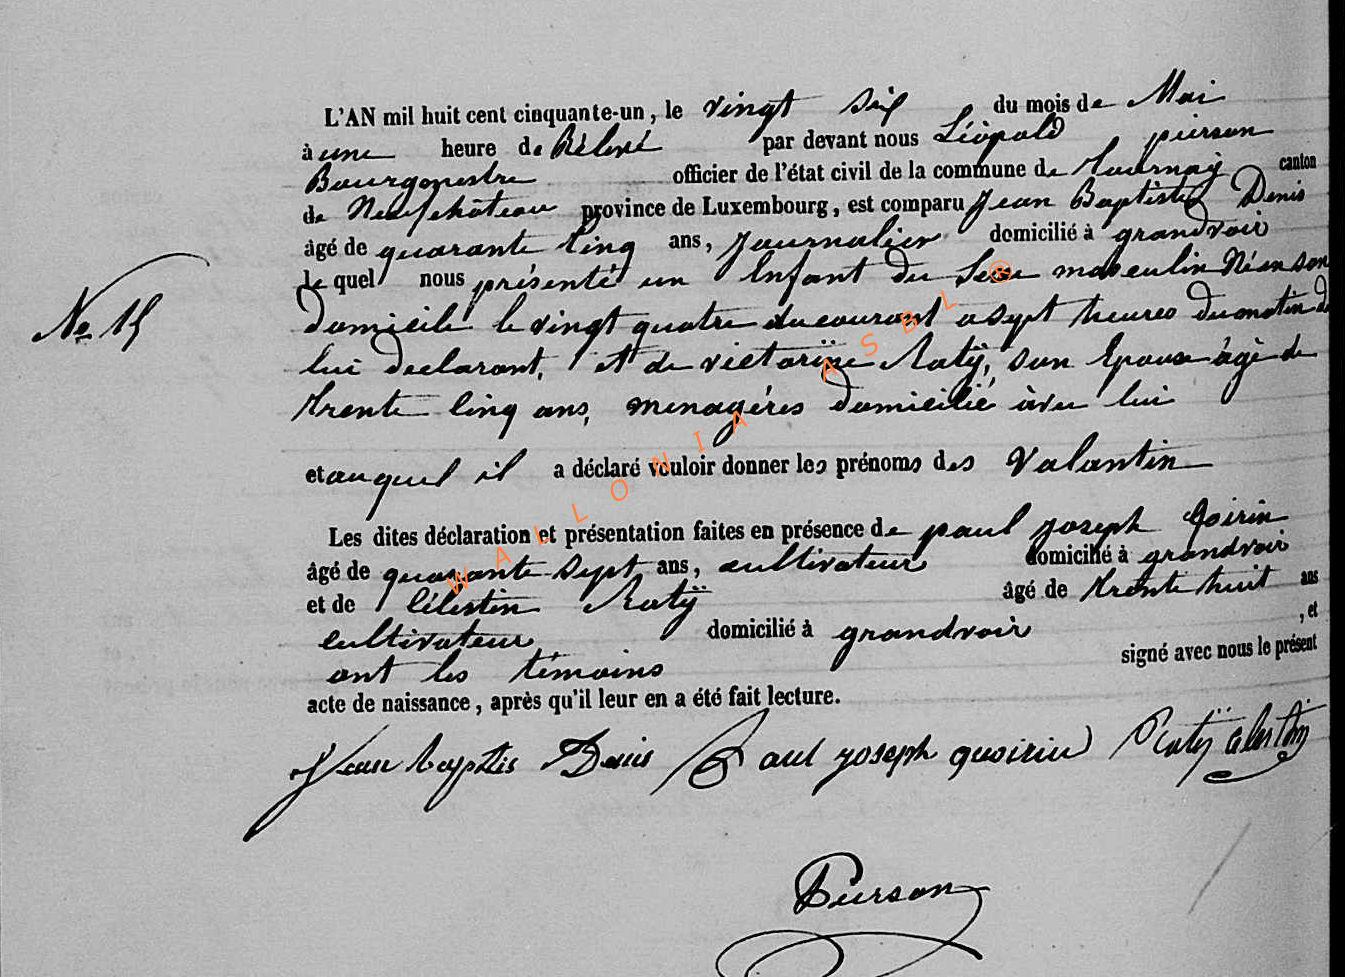 L'AN mil huit cent cinquante-un, le vingt six du mois de Mai
à une heure de Rélevé par devant nous Léopold pierson
Bourgmestre officier de l'état civil de la commune de Tournay canton
de Neufchâteau province de Luxembourg, est comparu Jean Baptiste Denis
âgé de quarante Cinq ans, Journalier domicilié à grandvoir
le quel nous présenté un Enfant du Sexe masculin Né en son
domicile le vingt quatre du courant a sept heures du matin de
N° 15
lui declarant, et de victorïne Ratÿ, son Epouse agé de
trente Cinq ans, menagéres domicilié avec lui
et auquel il a déclaré vouloir donner les prénoms des Valantin
Les dites déclaration et présentation faites en présence de paul Joseph Qoirin
âgé de quarante sept ans, cultivateur domicilié à grandvoir
et de Célestin Ratÿ âgé de trente huit ans
cultivateur domicilié à grandvoir , et
ont les témoins signé avec nous le présent
acte de naissance, après qu'il leur en a été fait lecture.
Jean baptis Denis Paul joseph quoirin Ratÿ celestin
Pierson
WALLONIA ASBL ®